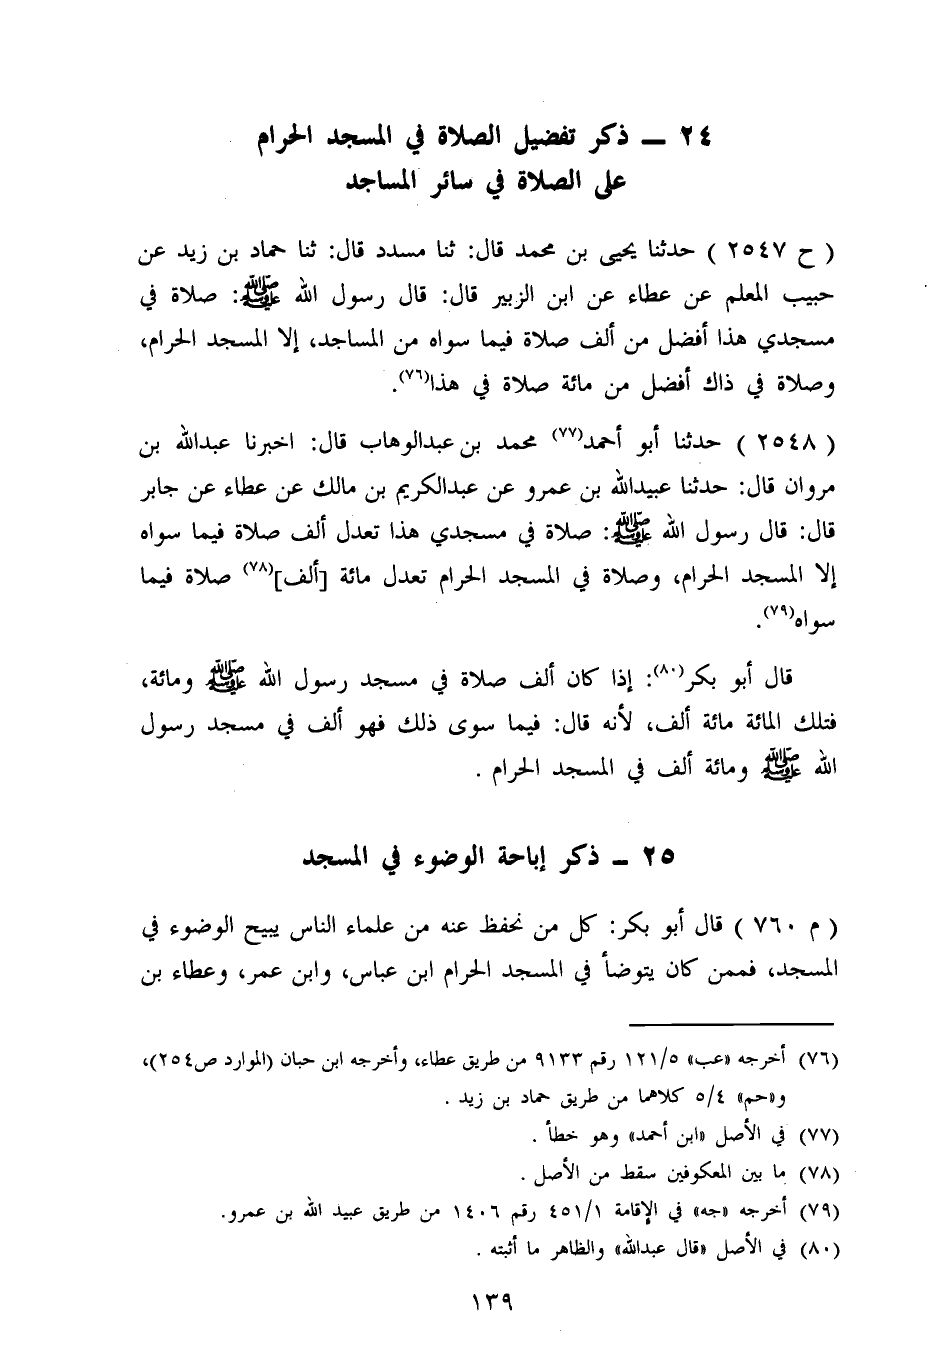 ٢٤ — ذكر تفضيل الصلاة في المسجد الحرام
على الصلاة في سائر المساجد
( ح ٢٥٤٧ ) حدثنا يحيى بن محمد قال: ثنا مسدد قال: ثنا حماد بن زيد عن
حبيب المعلم عن عطاء عن ابن الزبير قال: قال رسول الله ﷺ: صلاة في
مسجدي هذا أفضل من ألف صلاة فيما سواه من المساجد، إلا المسجد الحرام،
وصلاة في ذاك أفضل من مائة صلاة في هذا(٧٦).
( ٢٥٤٨ ) حدثنا أبو أحمد(٧٧) محمد بن عبدالوهاب قال: اخبرنا عبدالله بن
مروان قال: حدثنا عبيدالله بن عمرو عن عبدالكريم بن مالك عن عطاء عن جابر
قال: قال رسول الله ﷺ: صلاة في مسجدي هذا تعدل ألف صلاة فيما سواه
إلا المسجد الحرام، وصلاة في المسجد الحرام تعدل مائة [ألف](٧٨) صلاة فيما
سواه(٧٩).
قال أبو بكر(٨٠): إذا كان ألف صلاة في مسجد رسول الله ﷺ ومائة،
فتلك المائة مائة ألف، لأنه قال: فيما سوى ذلك فهو ألف في مسجد رسول
الله ﷺ ومائة ألف في المسجد الحرام .
٢٥ – ذكر إباحة الوضوء في المسجد
( م ٧٦٠ ) قال أبو بكر: كل من نحفظ عنه من علماء الناس يبيح الوضوء في
المسجد، فممن كان يتوضأ في المسجد الحرام ابن عباس، وابن عمر، وعطاء بن
(٧٦) أخرجه «عب» ١٢١/٥ رقم ٩١٣٣ من طريق عطاء، وأخرجه ابن حبان (الموارد ص٢٥٤)،
و«حم» ٥/٤ كلاهما من طريق حماد بن زيد .
(٧٧) في الأصل «ابن أحمد» وهو خطأ .
(٧٨) ما بين المعكوفين سقط من الأصل .
(٧٩) أخرجه «جه» في الإقامة ٤٥١/١ رقم ١٤٠٦ من طريق عبيد الله بن عمرو.
(٨٠) في الأصل «قال عبدالله» والظاهر ما أثبته .
١٣٩